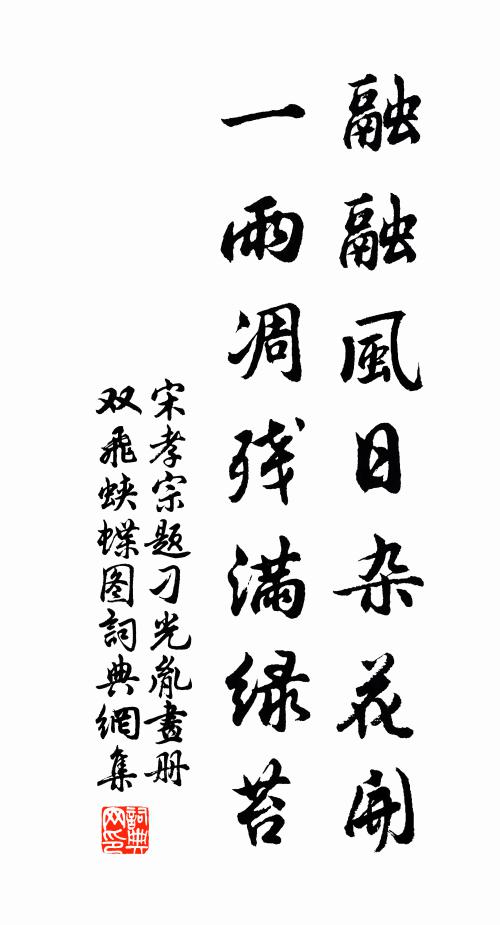 融融風日杂花開
一雨凋残满绿苔
宋孝宗题刁光胤畫册
双飛蛱蝶图詞典網集
詞典
网印